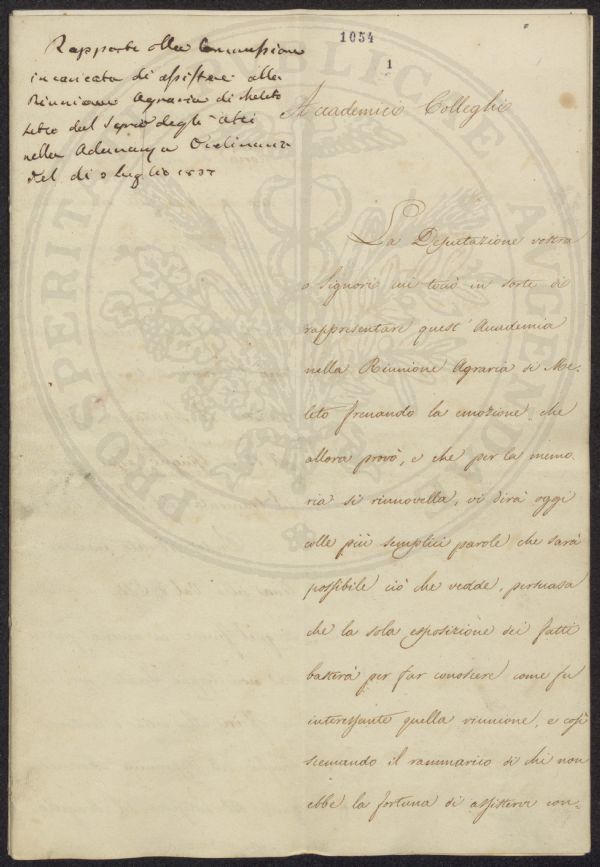 1054
1
Rapporto della Commissione
incaricata di assistere alla
Riunione Agraria di Meleto
letto dal degli
nella Adunanza Ordinaria
del dì 2 luglio 1837
Accademici Colleghi
La Deputazione vostra
o Signori cui toccò in sorte di
rappresentare quest' Accademia
nella Riunione Agraria di Me-
leto frenando la emozione che
allora provò, e che per la memo
ria si rinnovella, vi dirà oggi
colle più semplici parole che sarà
possibile ciò che vedde, persuasa
che la sola esposizione dei fatti
basterà per far conoscere come fu
interessante quella riunione, e così
scemando il rammarico di chi non
ebbe la fortuna di assistervi con-
PROSPERITATI PUBLICAE AUGENDAE